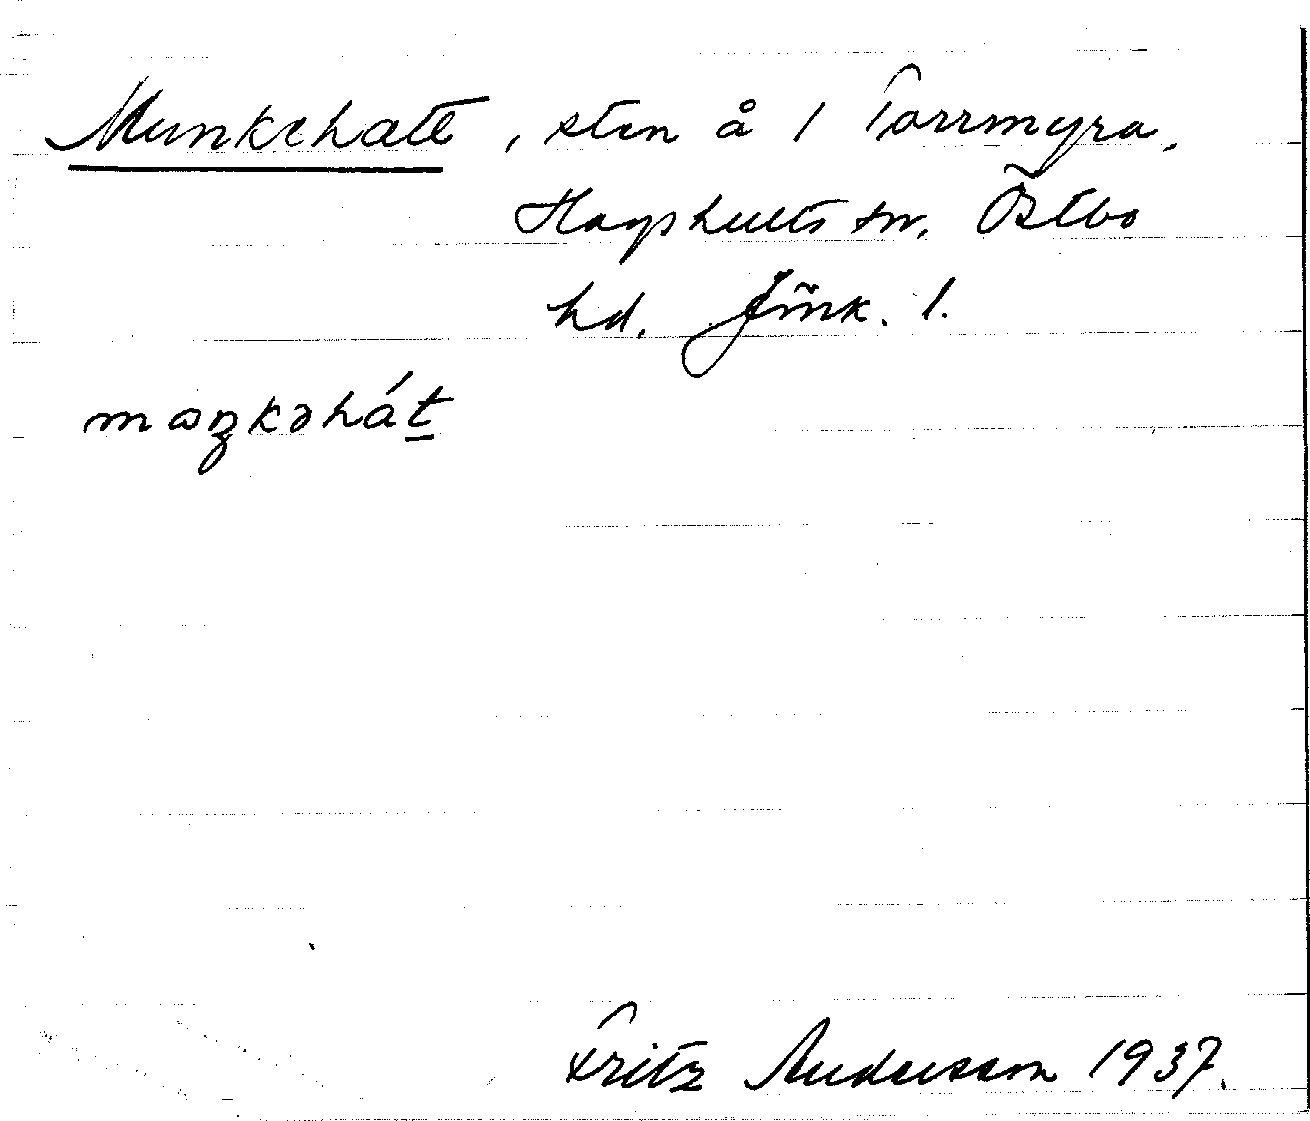 Munkehatt, sten å 1 Torrmyra,
Hagshults sn. Östbo
hd. Jönk. l.
məŋkəhát
Fritz Andersson 1937.